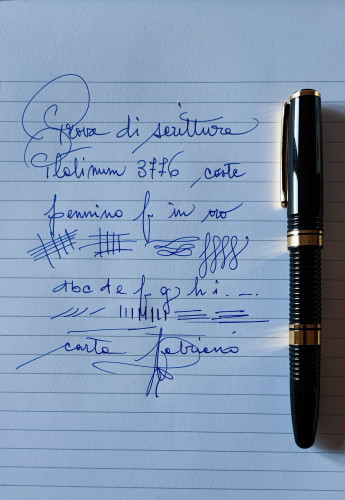 Prova di scrittura
Platinum 3776, carte
pennino f in oro
abc de f g h i . _ .
carta fabriano